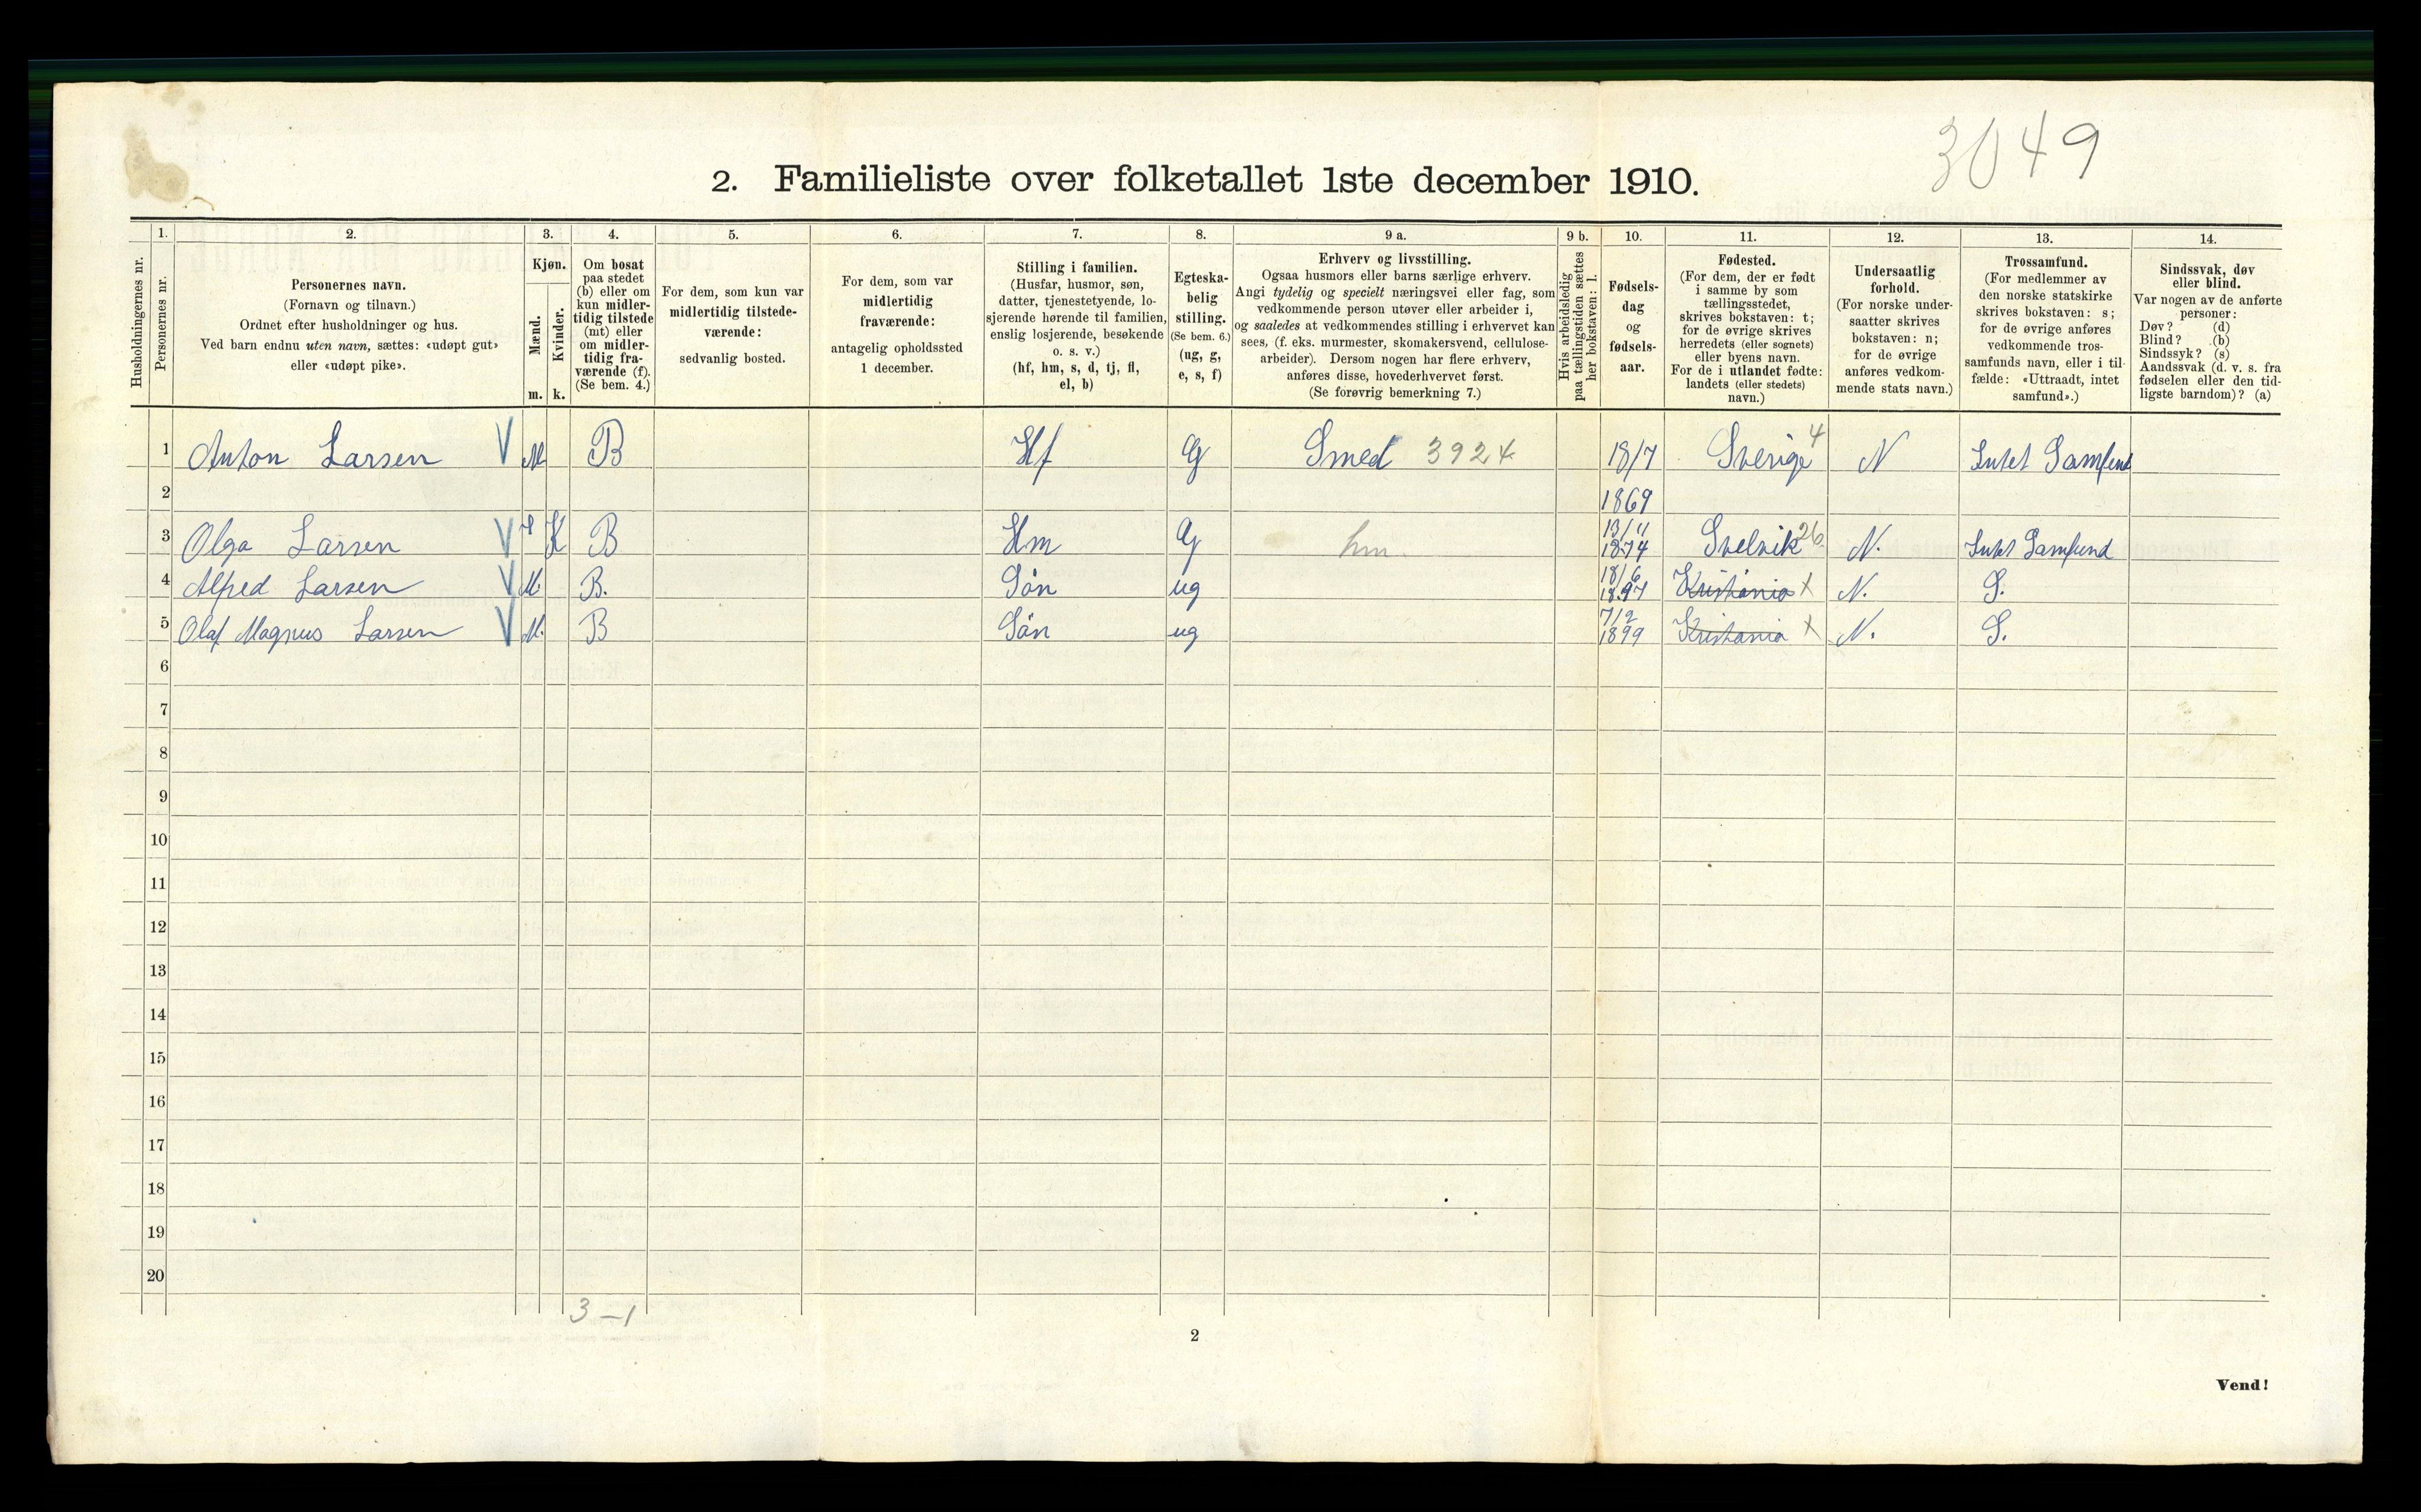 3049
2. Familieliste over folketallet 1ste december 1910.
Husholdningernes nr.
1.
Personernes nr.
2.
Personernes navn.
(Fornavn og tilnavn.)
Ordnet efter husholdninger og hus.
Ved barn endnu uten navn, sættes: «udøpt gut»
eller «udøpt pike».
3.
Kjøn.
Mænd.
Kvinder.
m. k.
4.
Om bosat
paa stedet
(b) eller om
kun midler-
tidig tilstede
(mt) eller
om midler-
tidig fra-
værende (f).
(Se bem. 4.)
5.
For dem, som kun var
midlertidig tilstede-
værende:
sedvanlig bosted.
6.
For dem, som var
midlertidig
fraværende:
antagelig opholdssted
1 december.
7.
Stilling i familien.
(Husfar, husmor, søn,
datter, tjenestetyende, lo-
sjerende hørende til familien,
enslig losjerende, besøkende
o. s. v.)
(hf, hm, s, d, tj, fl,
el, b)
8.
Egteska-
belig
stilling.
(Se bem. 6.)
(ug, g,
e, s, f)
9 a.
Erhverv og livsstilling.
Ogsaa husmors eller barns særlige erhverv.
Angi tydelig og specielt næringsvei eller fag, som
vedkommende person utøver eller arbeider i,
og saaledes at vedkommendes stilling i erhvervet kan
sees, (f. eks. murmester, skomakersvend, cellulose-
arbeider). Dersom nogen har flere erhverv,
anføres disse, hovederhvervet først.
(Se forøvrig bemerkning 7.)
9 b.
Hvis arbeidsledig
paa tællingstiden sættes
her bokstaven: l.
10.
Fødsels-
dag
og
fødsels-
aar.
11.
Fødested.
(For dem, der er født
i samme by som
tællingsstedet,
skrives bokstaven: t;
for de øvrige skrives
herredets (eller sognets)
eller byens navn.
For de i utlandet fødte:
landets (eller stedets)
navn.)
12.
Undersaatlig
forhold.
(For norske under-
saatter skrives
bokstaven: n;
for de øvrige
anføres vedkom-
mende stats navn.)
13.
Trossamfund.
(For medlemmer av
den norske statskirke
skrives bokstaven: s;
for de øvrige anføres
vedkommende tros-
samfunds navn, eller i til-
fælde: «Uttraadt, intet
samfund».)
14.
Sindssvak, døv
eller blind.
Var nogen av de anførte
personer:
Døv? (d)
Blind? (b)
Sindssyk? (s)
Aandssvak (d. v. s. fra
fødselen eller den tid-
ligste barndom)? (a)
1 Anton Larsen V M B Hf G Smed 3924 18/7 Sverige 4 N Intet Samfund
2 1869
3 Olga Larsen V K B Hm G hm. 13/11 1874 Svelvik 26 N. Intet Samfund
4 Alfred Larsen V M B. Søn ug 18/6 1897 Kristiania X N. S.
5 Olaf Magnus Larsen V M. B Søn ug 7/2 1899 Kristiania X N. S.
6
7
8
9
10
11
12
13
14
15
16
17
18
19
20
3–1
2
Vend!